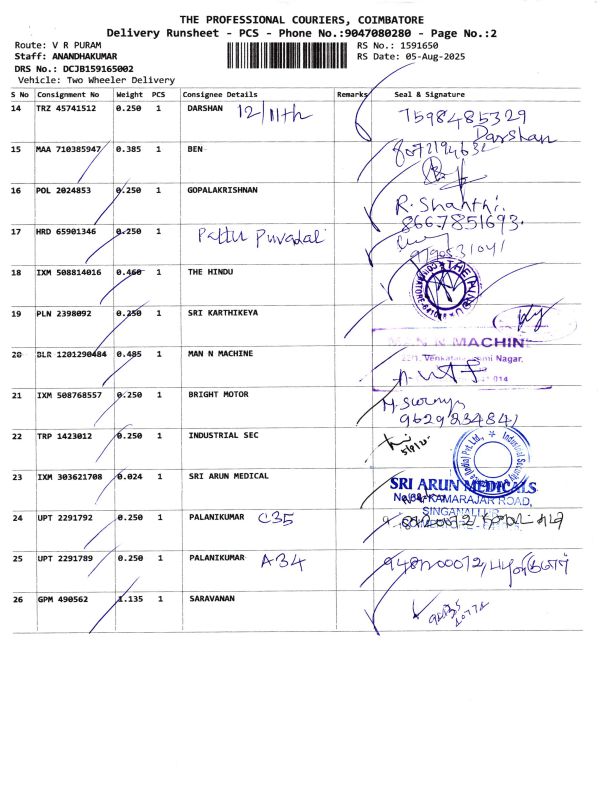 THE PROFESSIONAL COURIERS, COIMBATORE
Delivery Runsheet - PCS - Phone No.:9047080280 - Page No.:2
Route: V R PURAM
RS No.: 1591650
Staff: ANANDHAKUMAR
RS Date: 05-Aug-2025
DRS No.: DCJB159165002
Vehicle: Two Wheeler Delivery
S No Consignment No Weight PCS Consignee Details Remarks Seal & Signature
14 TRZ 45741512 0.250 1 DARSHAN 12/11th 7598485329
Darshan
15 MAA 710385947 0.385 1 BEN 8072194632
16 POL 2024853 0.250 1 GOPALAKRISHNAN R. Shanthi.
8667851693.
17 HRD 65901346 0.250 1 Pattu Puvadai 9790531041
18 IXM 508814016 0.460 1 THE HINDU THE HINDU
19 PLN 2398092 0.250 1 SRI KARTHIKEYA
20 BLR 1201290484 0.485 1 MAN N MACHINE MAN N MACHIN
Nagar,
21 IXM 508768557 0.250 1 BRIGHT MOTOR
9629834841
22 TRP 1423012 0.250 1 INDUSTRIAL SEC Pvt. Ltd.,
23 IXM 303621708 0.024 1 SRI ARUN MEDICAL SRI ARUN MEDICALS
KAMARAJAR ROAD,
SINGANALLUR
24 UPT 2291792 0.250 1 PALANIKUMAR C35
25 UPT 2291789 0.250 1 PALANIKUMAR A34
26 GPM 490562 1.135 1 SARAVANAN